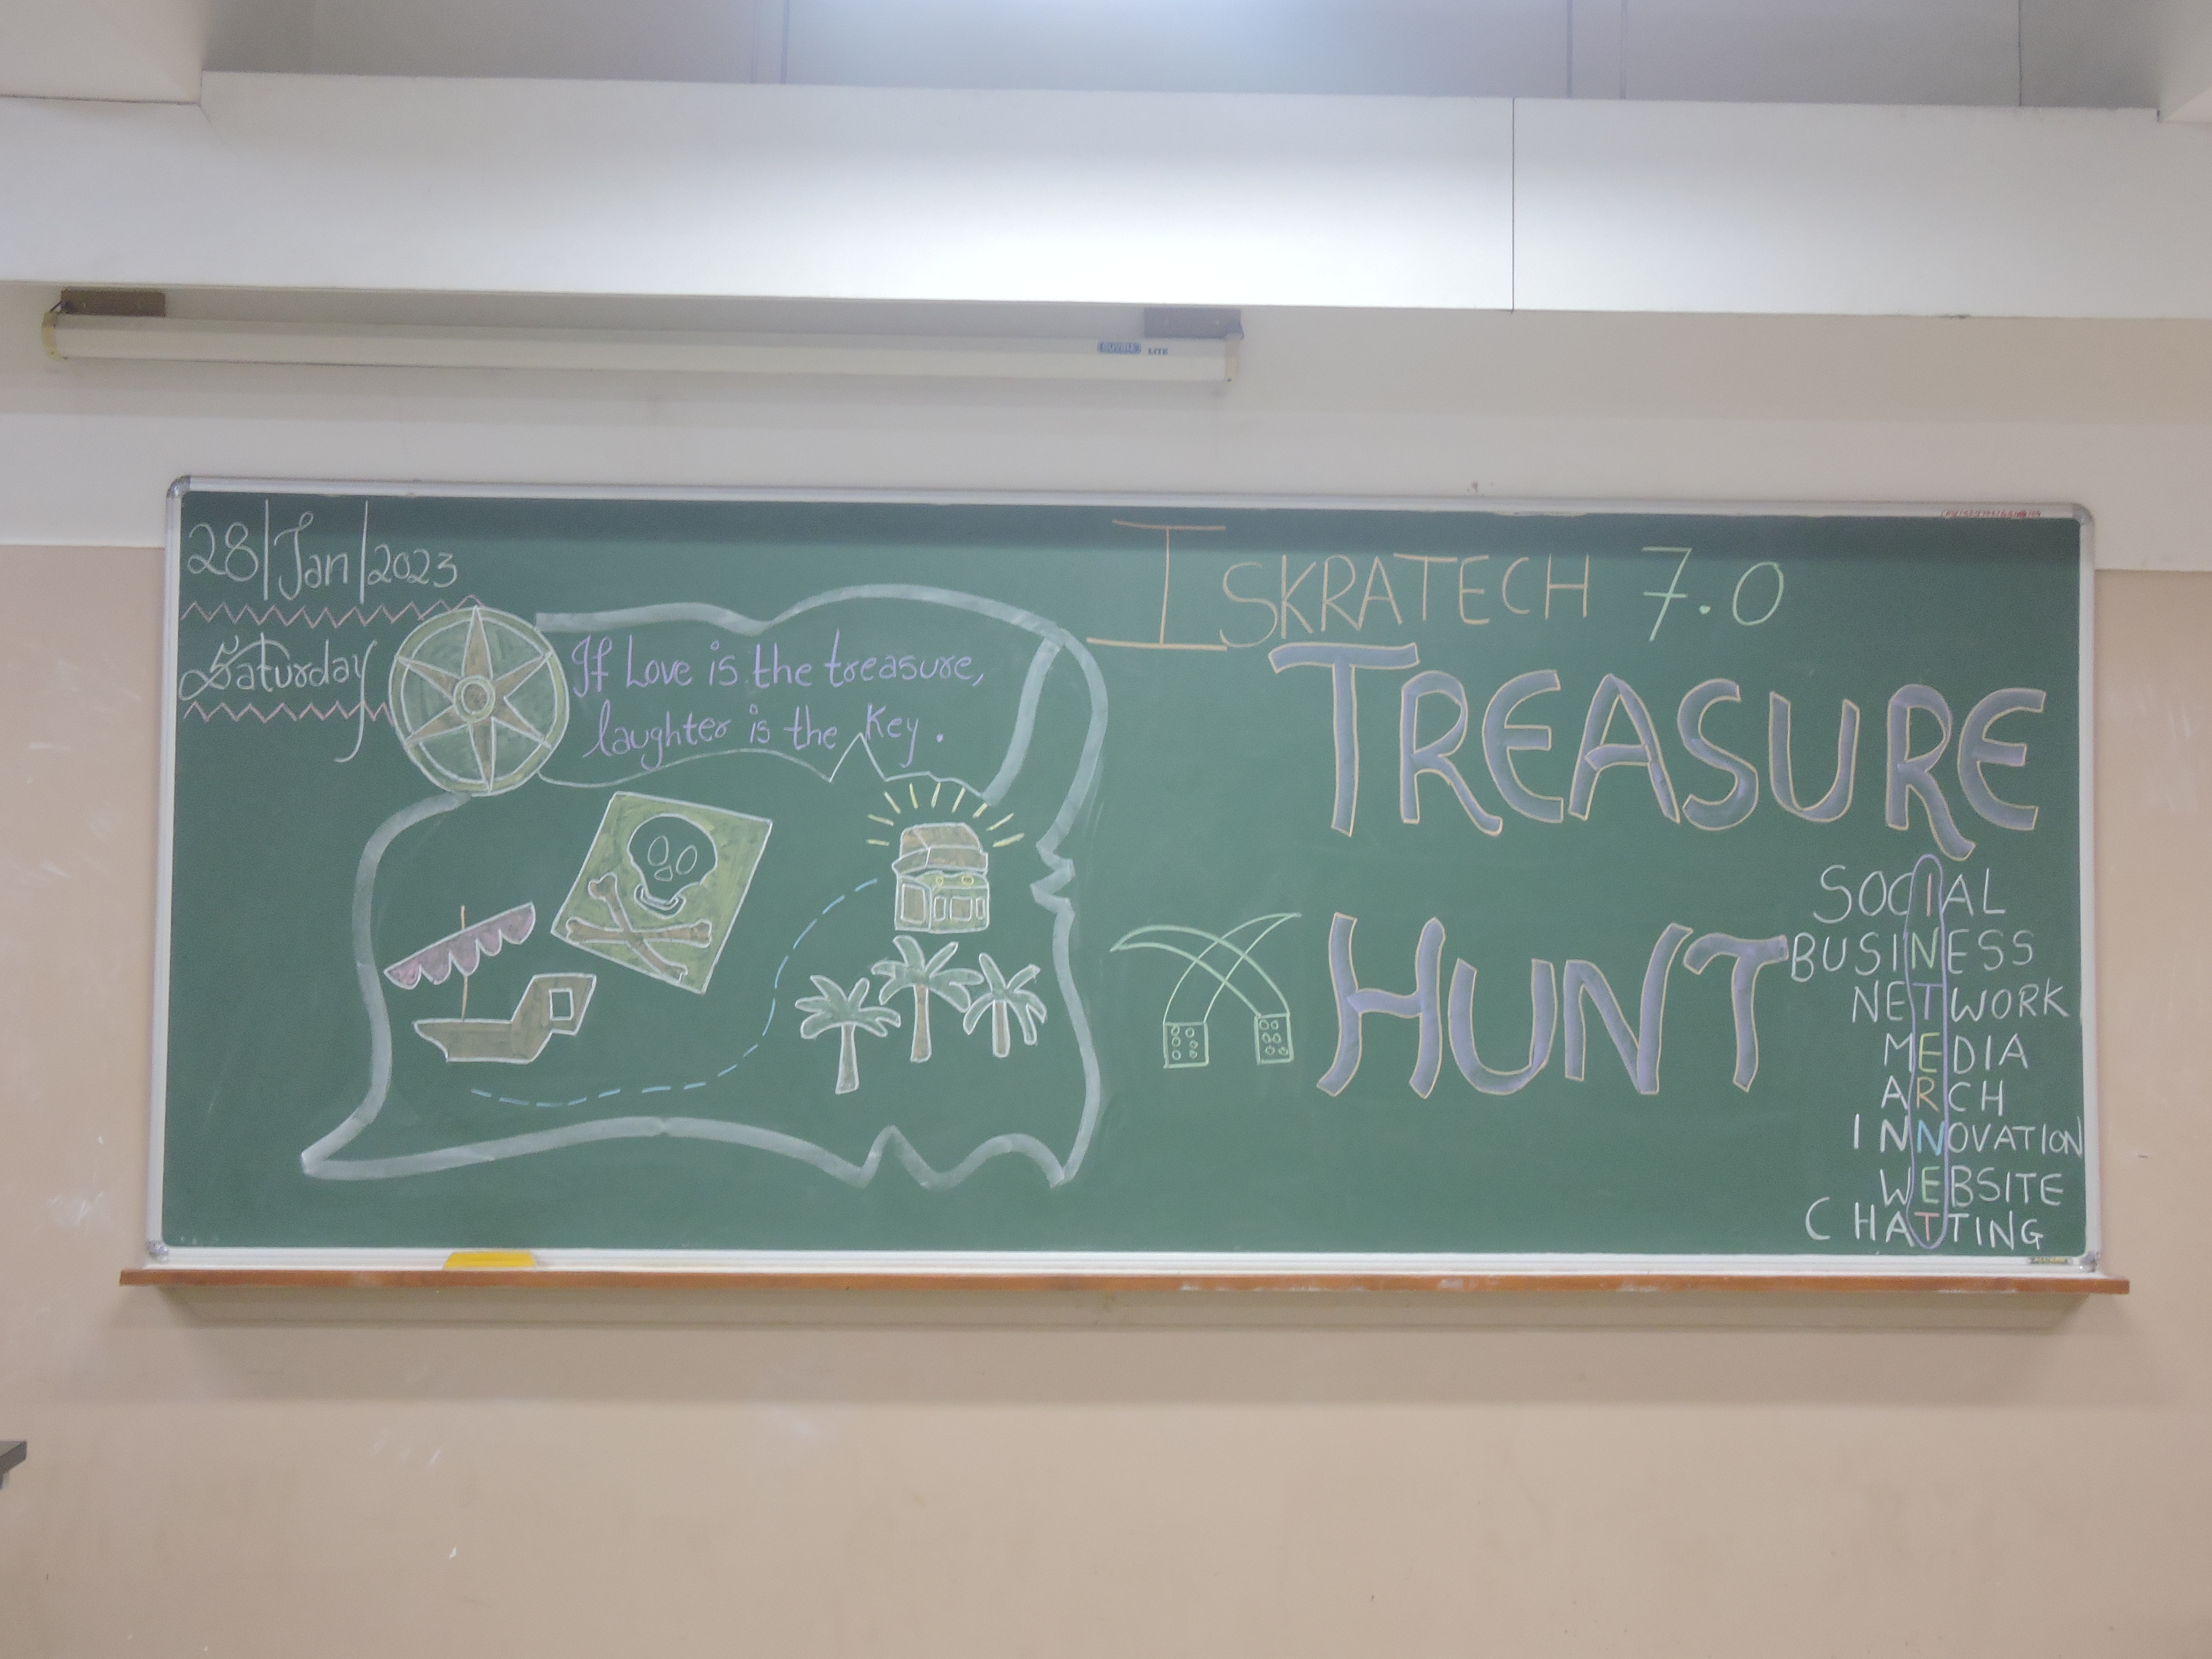 LITE
28|Jan|2023
Saturday
If Love is the treasure,
laughter is the Key.
ISKRATECH 7.0
TREASURE
HUNT
SOCIAL
BUSINESS
NETWORK
MEDIA
ARCH
INNOVATION
WEBSITE
CHATTING